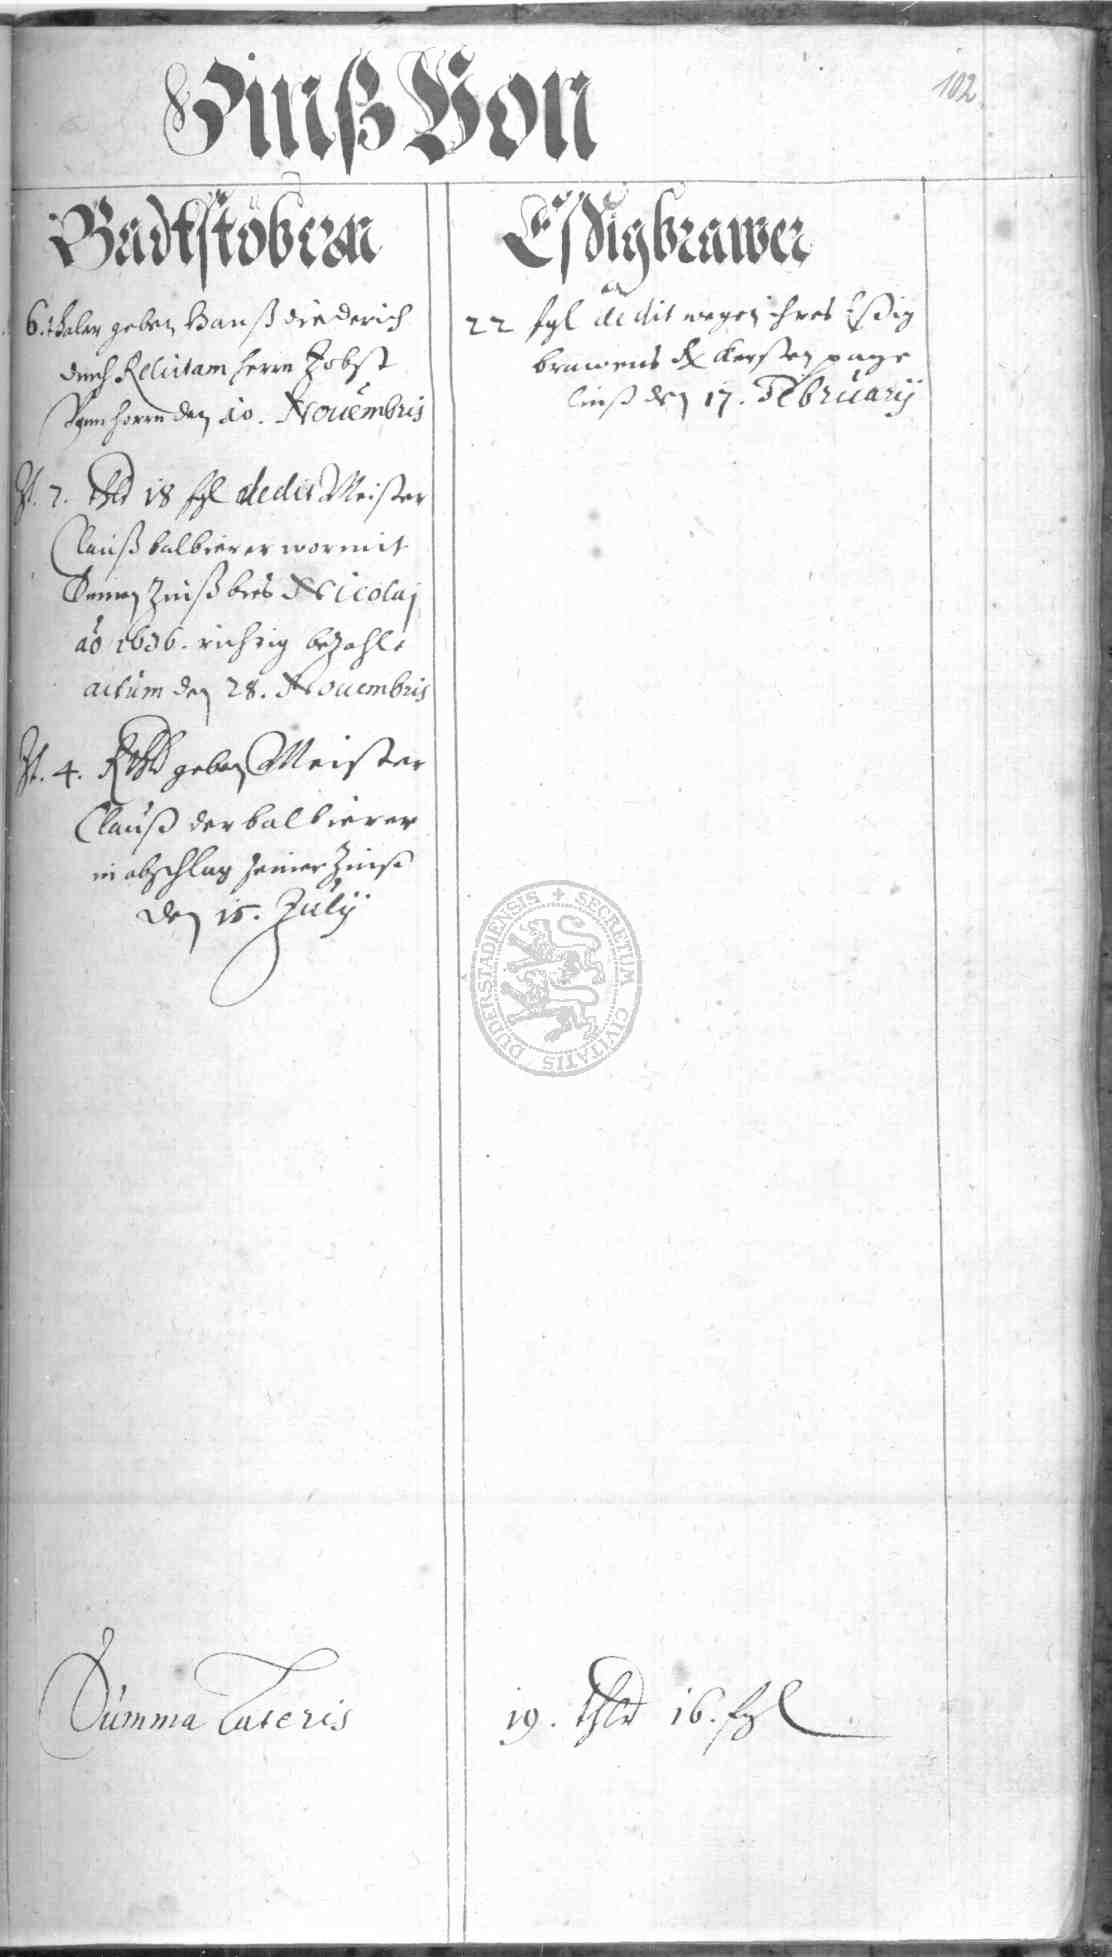 102
Zinß Von
Badtstöbern
6. thaler geben Hanß diederich
durch Relictam herrn Jobst
herrn den 10. Nouembris
It. 7. thlr 18 sgl dedit Meister
Clauß balbierer wormit
Seinen Zinß bies Nicolaj
aö 1636. richtig bezahlt
actum den 28. Nouembris
It. 4. Rthlr geben Meister
Clauß der balbierer
in abschlag seiner Zinse
den 15. Julÿ
Eßigbrawer
22 sgl dedit wegen ihres Eßig
brawens Kersten page
linß den 17. Februarÿ
SECRETUM CIVITATIS DUDERSTADIENSIS
Summa Lateris 19. thlr 16. sgl